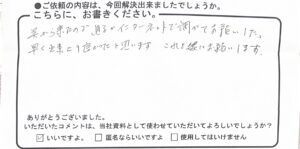 ●ご依頼の内容は、今回解決出来ましたでしょうか。
こちらに、お書きください。
急から来たので、過子がインターネットで調がてお願いした。
早く出来て良かったと思います これも様にお願います。
ありがとうございました。
いただいたコメントは、当社資料として使わせていただいてよろしいでしょうか?
☑いいですよ。 □匿名ならいいですよ □使用してはいけません